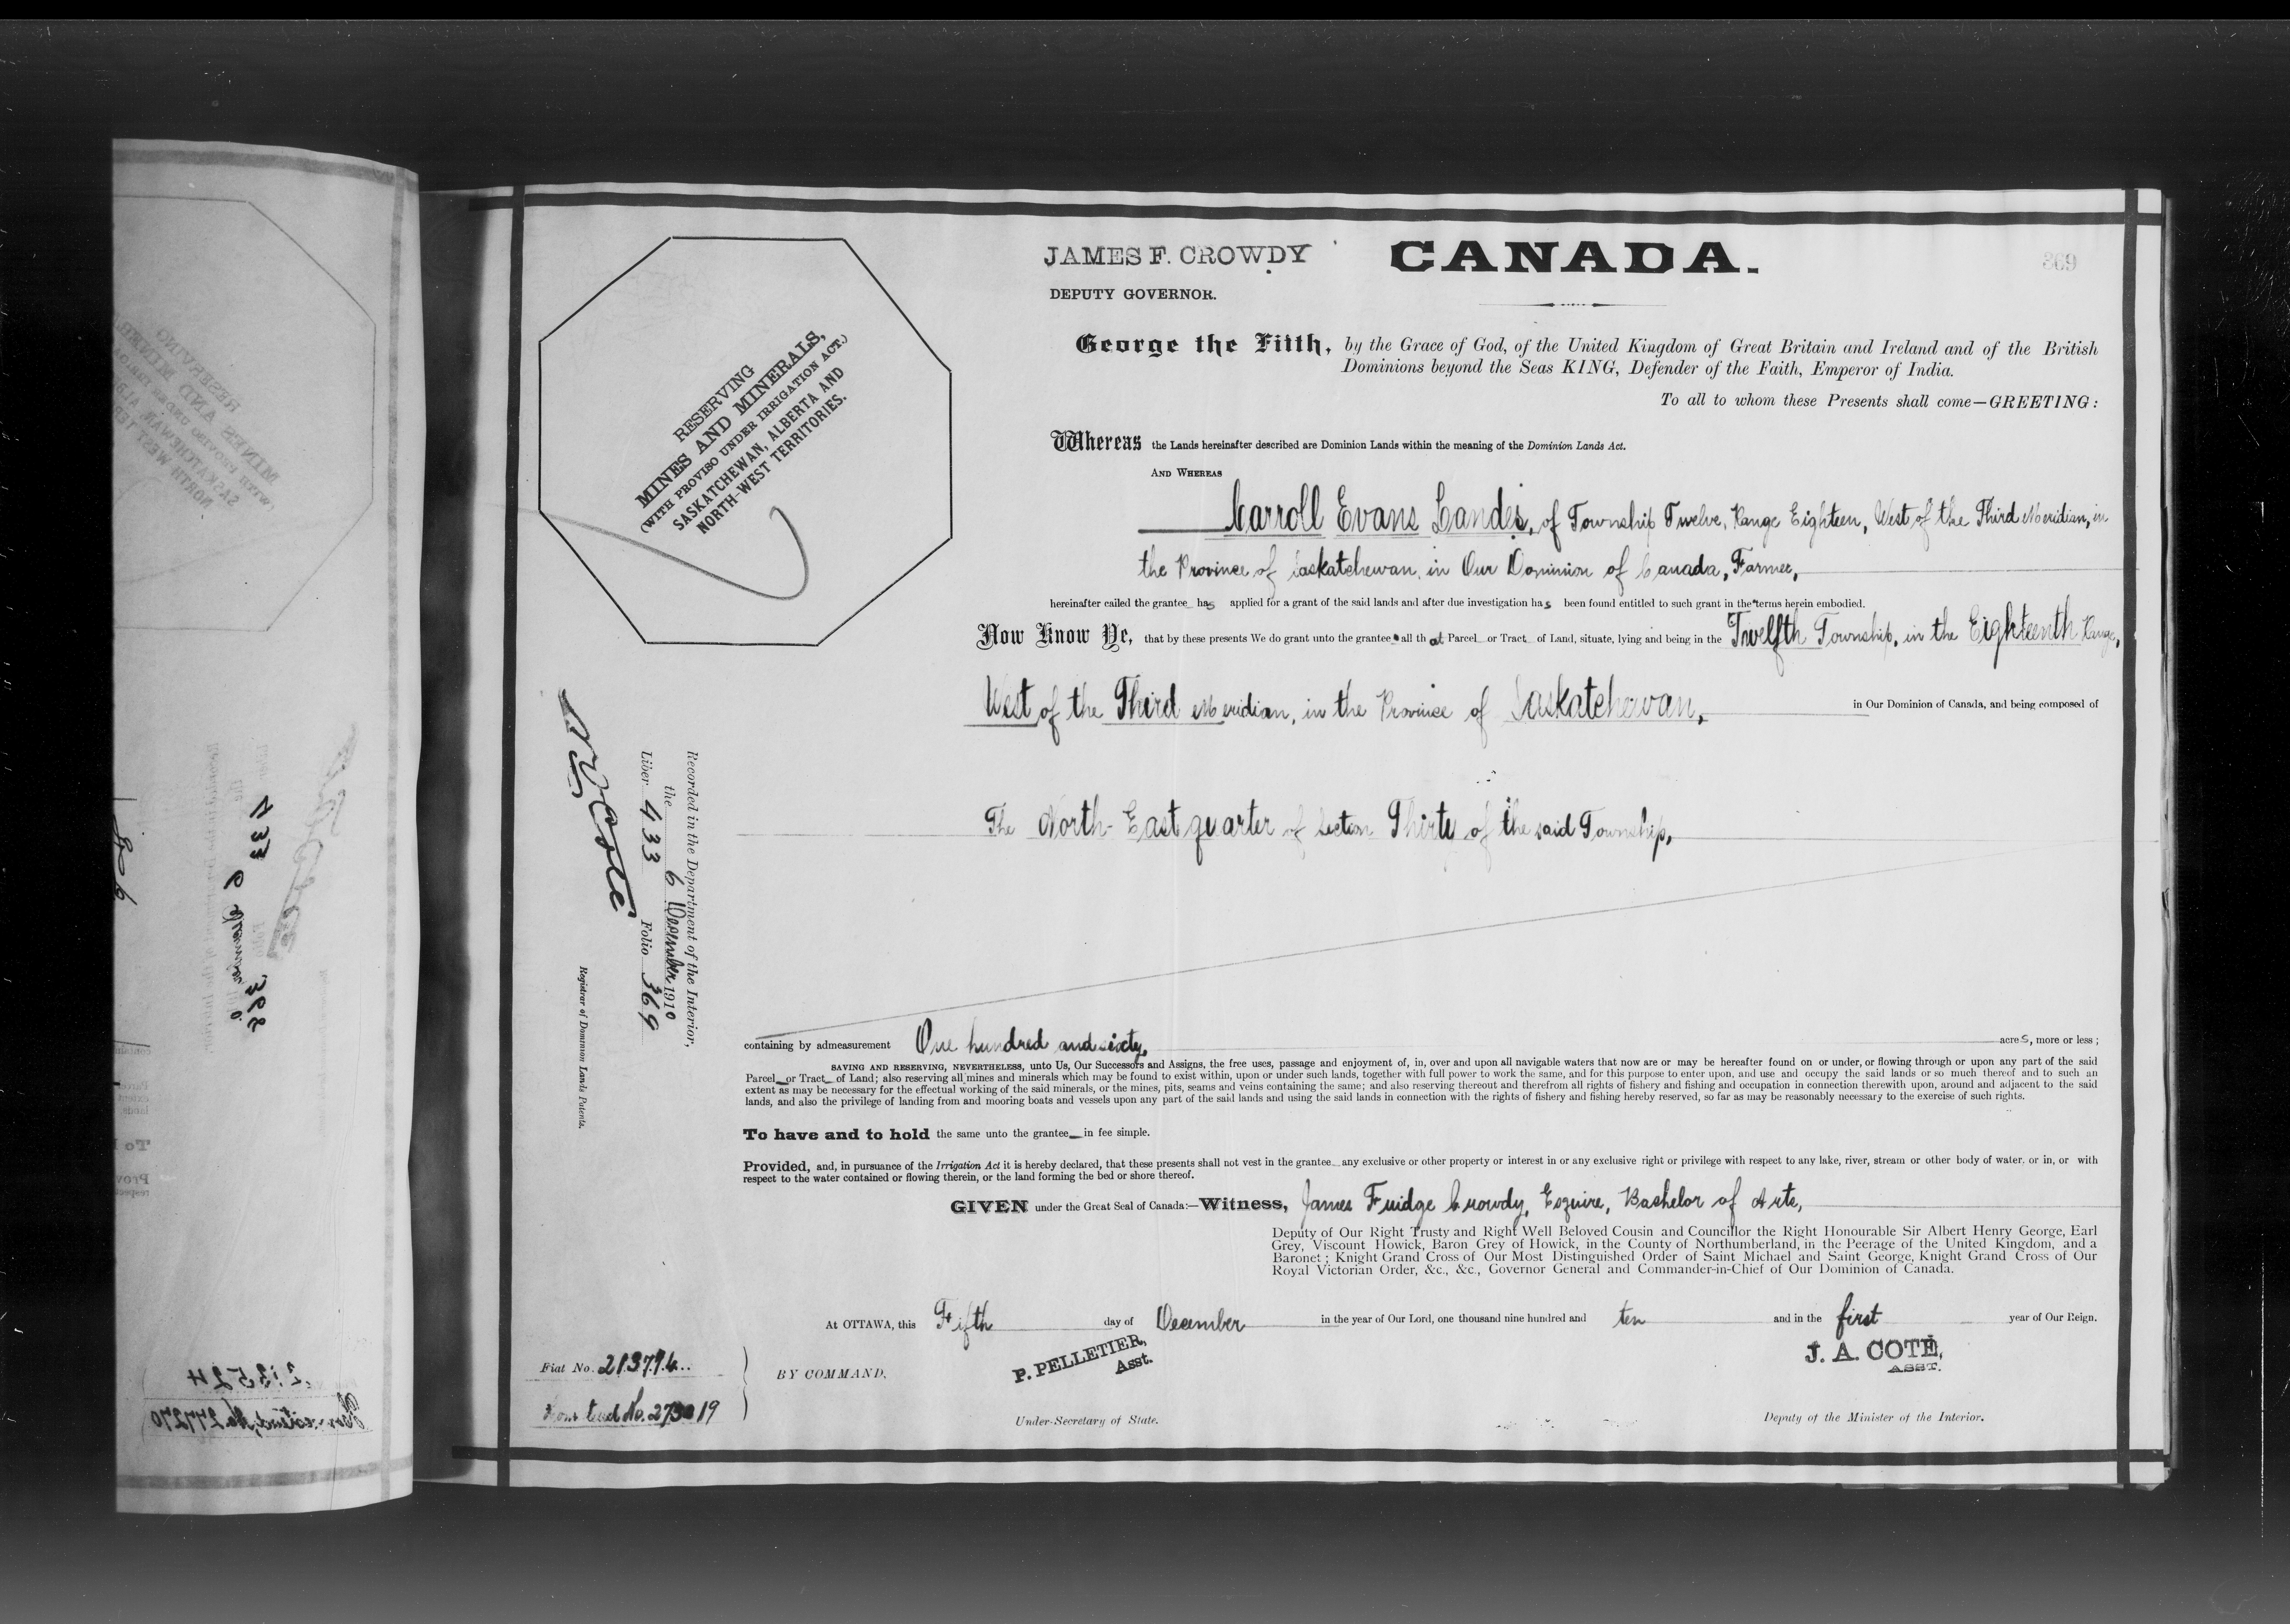 JAMES F. CROWDY
CANADA.
369
DEPUTY GOVERNOR.
George the Fifth, by the Grace of God, of the United Kingdom of Great Britain and Ireland and of the British
Dominions beyond the Seas KING, Defender of the Faith, Emperor of India.
To all to whom these Presents shall come—GREETING:
RESERVING
MINES AND MINERALS,
(WITH PROVISO UNDER IRRIGATION ACT.)
SASKATCHEWAN, ALBERTA AND
NORTH-WEST TERRITORIES.
Whereas the Lands hereinafter described are Dominion Lands within the meaning of the Dominion Lands Act.
AND WHEREAS
Carroll Evans Landis, of Township Twelve, Range Eighteen, West of the Third Meridian, in
the Province of Saskatchewan, in Our Dominion of Canada, Farmer,
hereinafter called the grantee has applied for a grant of the said lands and after due investigation has been found entitled to such grant in the terms herein embodied.
Now Know Ye, that by these presents We do grant unto the grantee all that Parcel or Tract of Land, situate, lying and being in the Twelfth Township, in the Eighteenth Range,
West of the Third Meridian, in the Province of Saskatchewan, in Our Dominion of Canada, and being composed of
The North-East quarter of Section Thirty of the said Township,
Recorded in the Department of the Interior,
the 6 December 1910
Liber 433 Folio 369
N O Coté
Registrar of Dominion Lands Patents.
containing by admeasurement One hundred and sixty, acres, more or less;
SAVING AND RESERVING, NEVERTHELESS, unto Us, Our Successors and Assigns, the free uses, passage and enjoyment of, in, over and upon all navigable waters that now are or may be hereafter found on or under, or flowing through or upon any part of the said
Parcel or Tract of Land; also reserving all mines and minerals which may be found to exist within, upon or under such lands, together with full power to work the same, and for this purpose to enter upon, and use and occupy the said lands or so much thereof and to such an
extent as may be necessary for the effectual working of the said minerals, or the mines, pits, seams and veins containing the same; and also reserving thereout and therefrom all rights of fishery and fishing and occupation in connection therewith upon, around and adjacent to the said
lands, and also the privilege of landing from and mooring boats and vessels upon any part of the said lands and using the said lands in connection with the rights of fishery and fishing hereby reserved, so far as may be reasonably necessary to the exercise of such rights.
To have and to hold the same unto the grantee in fee simple.
Provided, and, in pursuance of the Irrigation Act it is hereby declared, that these presents shall not vest in the grantee any exclusive or other property or interest in or any exclusive right or privilege with respect to any lake, river, stream or other body of water, or in, or with
respect to the water contained or flowing therein, or the land forming the bed or shore thereof.
GIVEN under the Great Seal of Canada:—Witness, James Fuidge Crowdy, Esquire, Bachelor of Arts,
Deputy of Our Right Trusty and Right Well Beloved Cousin and Councillor the Right Honourable Sir Albert Henry George, Earl
Grey, Viscount Howick, Baron Grey of Howick, in the County of Northumberland, in the Peerage of the United Kingdom, and a
Baronet; Knight Grand Cross of Our Most Distinguished Order of Saint Michael and Saint George, Knight Grand Cross of Our
Royal Victorian Order, &c., &c., Governor General and Commander-in-Chief of Our Dominion of Canada.
At OTTAWA, this Fifth day of December in the year of Our Lord, one thousand nine hundred and ten and in the first year of Our Reign.
Fiat No. 213794
Homestead No. 273019
BY COMMAND,
P. PELLETIER,
Asst.
Under-Secretary of State.
J. A. COTÉ,
ASST.
Deputy of the Minister of the Interior.